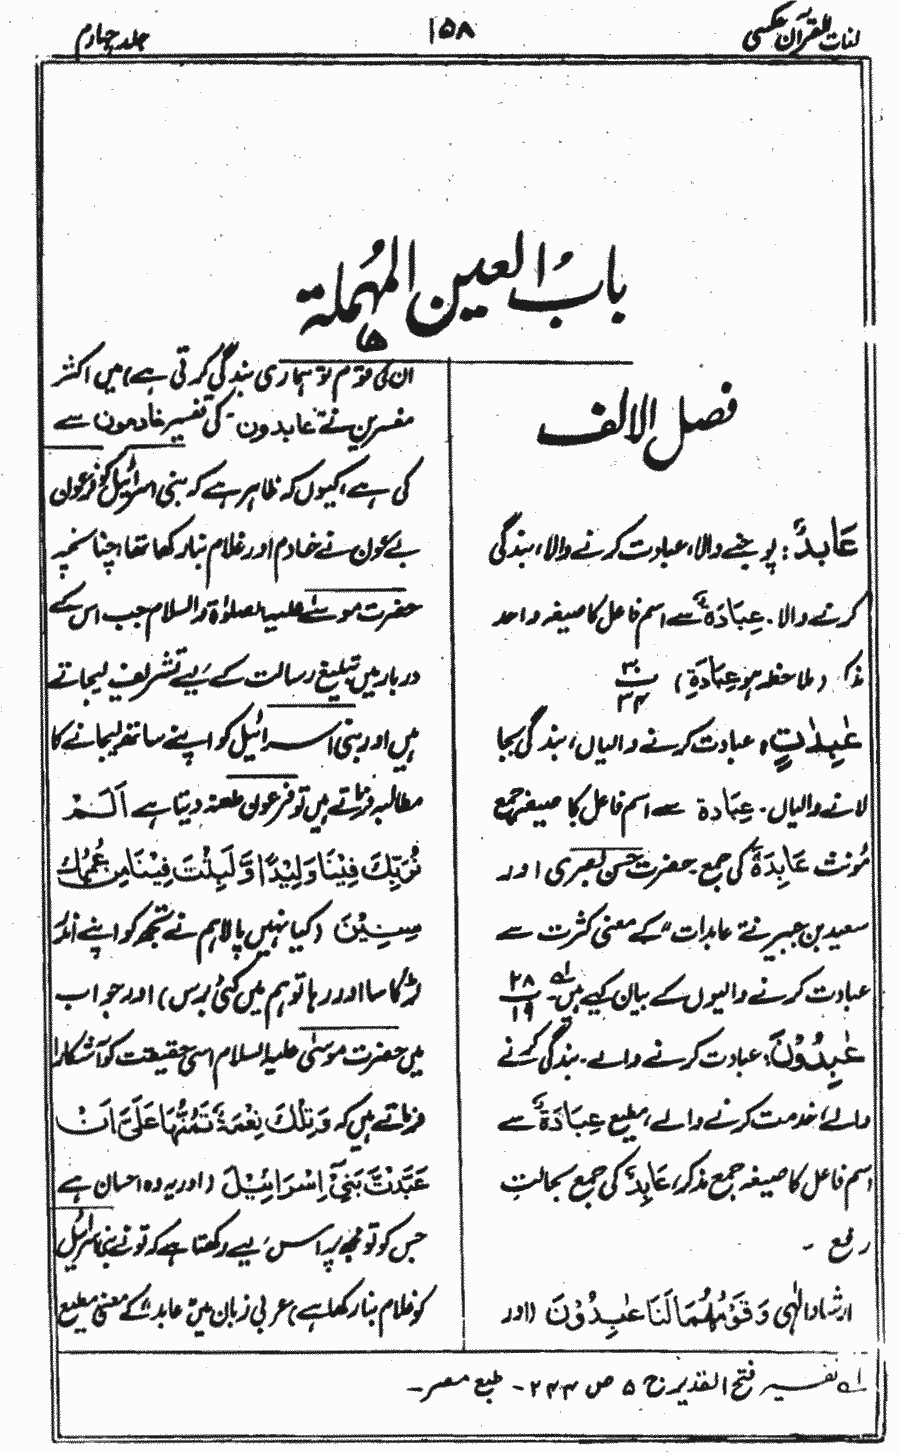 لغات القرآن عکسی
۱۵۸
جلد چہارم
باب العین المہملة
فصل الالف
عَابِدٌ : پوجنے والا، عبادت کرنے والا، بندگی
کرنے والا۔ عِبَادَةٌ سے اسم فاعل کا صیغہ واحد
مذکر (ملاحظہ ہو عِبَادَةِ) ۳۰ ۳۴
عٰبِدٰتٍ : عبادت کرنے والیاں، بندگی بجا
لانے والیاں۔ عِبَادة سے اسم فاعل کا صیغہ جمع
مؤنث عَابِدَةٌ کی جمع۔ حضرت حسن بصری اور
سعید بن جبیر نے "عابدات" کے معنی کثرت سے
عبادت کرنے والیوں کے بیان کیے ہیں۔ ؎۱ ۲۸ ۱۹
عٰبِدُوْنَ : عبادت کرنے والے۔ بندگی کرنے
والے، خدمت کرنے والے، مطیع عِبَادَةٌ سے
اسم فاعل کا صیغہ جمع مذکر، عَابِدٌ کی جمع بحالت
رفع ۔
ارشاد الٰہی وَقَوْمُهُمَا لَنَا عٰبِدُوْنَ (اور
ان کی قوم تو ہماری بندگی کرتی ہے) میں اکثر
مفسرین نے "عابدون" کی تفسیر خادمون سے
کی ہے، کیوں کہ ظاہر ہے کہ بنی اسرائیل کو فرعون
بے عون نے خادم اور غلام بنا رکھا تھا، چنانچہ
حضرت موسٰے علیہ الصلوٰة والسلام جب اس کے
دربار میں تبلیغ رسالت کے لیے تشریف لیجاتے
ہیں اور بنی اسرائیل کو اپنے ساتھ لیجانے کا
مطالبہ فرماتے ہیں تو فرعون طعنہ دیتا ہے اَلَمْ
نُرَبِّكَ فِيْنَا وَلِيْدًا وَّلَبِثْتَ فِيْنَا مِنْ عُمُرِكَ
سِنِيْنَ (کیا نہیں پالا ہم نے تجھ کو اپنے اندر
لڑکا سا اور رہا تو ہم میں کئی برس) اور جواب
میں حضرت موسٰی علیہ السلام اسی حقیقت کو آشکارا
فرماتے ہیں کہ وَتِلْكَ نِعْمَةٌ تَمُنُّهَا عَلَيَّ اَنْ
عَبَّدْتَّ بَنِيْٓ اِسْرَائِيْلَ (اور یہ وہ احسان ہے
جس کو تو مجھ پر اس لیے رکھتا ہے کہ تو نے بنی اسرائیل
کو غلام بنا رکھا ہے) عربی زبان میں "عابد" کے معنی مطیع
؎۱ تفسیر فتح القدیر ج ۵ ص ۲۴۴ ۔ طبع مصر۔